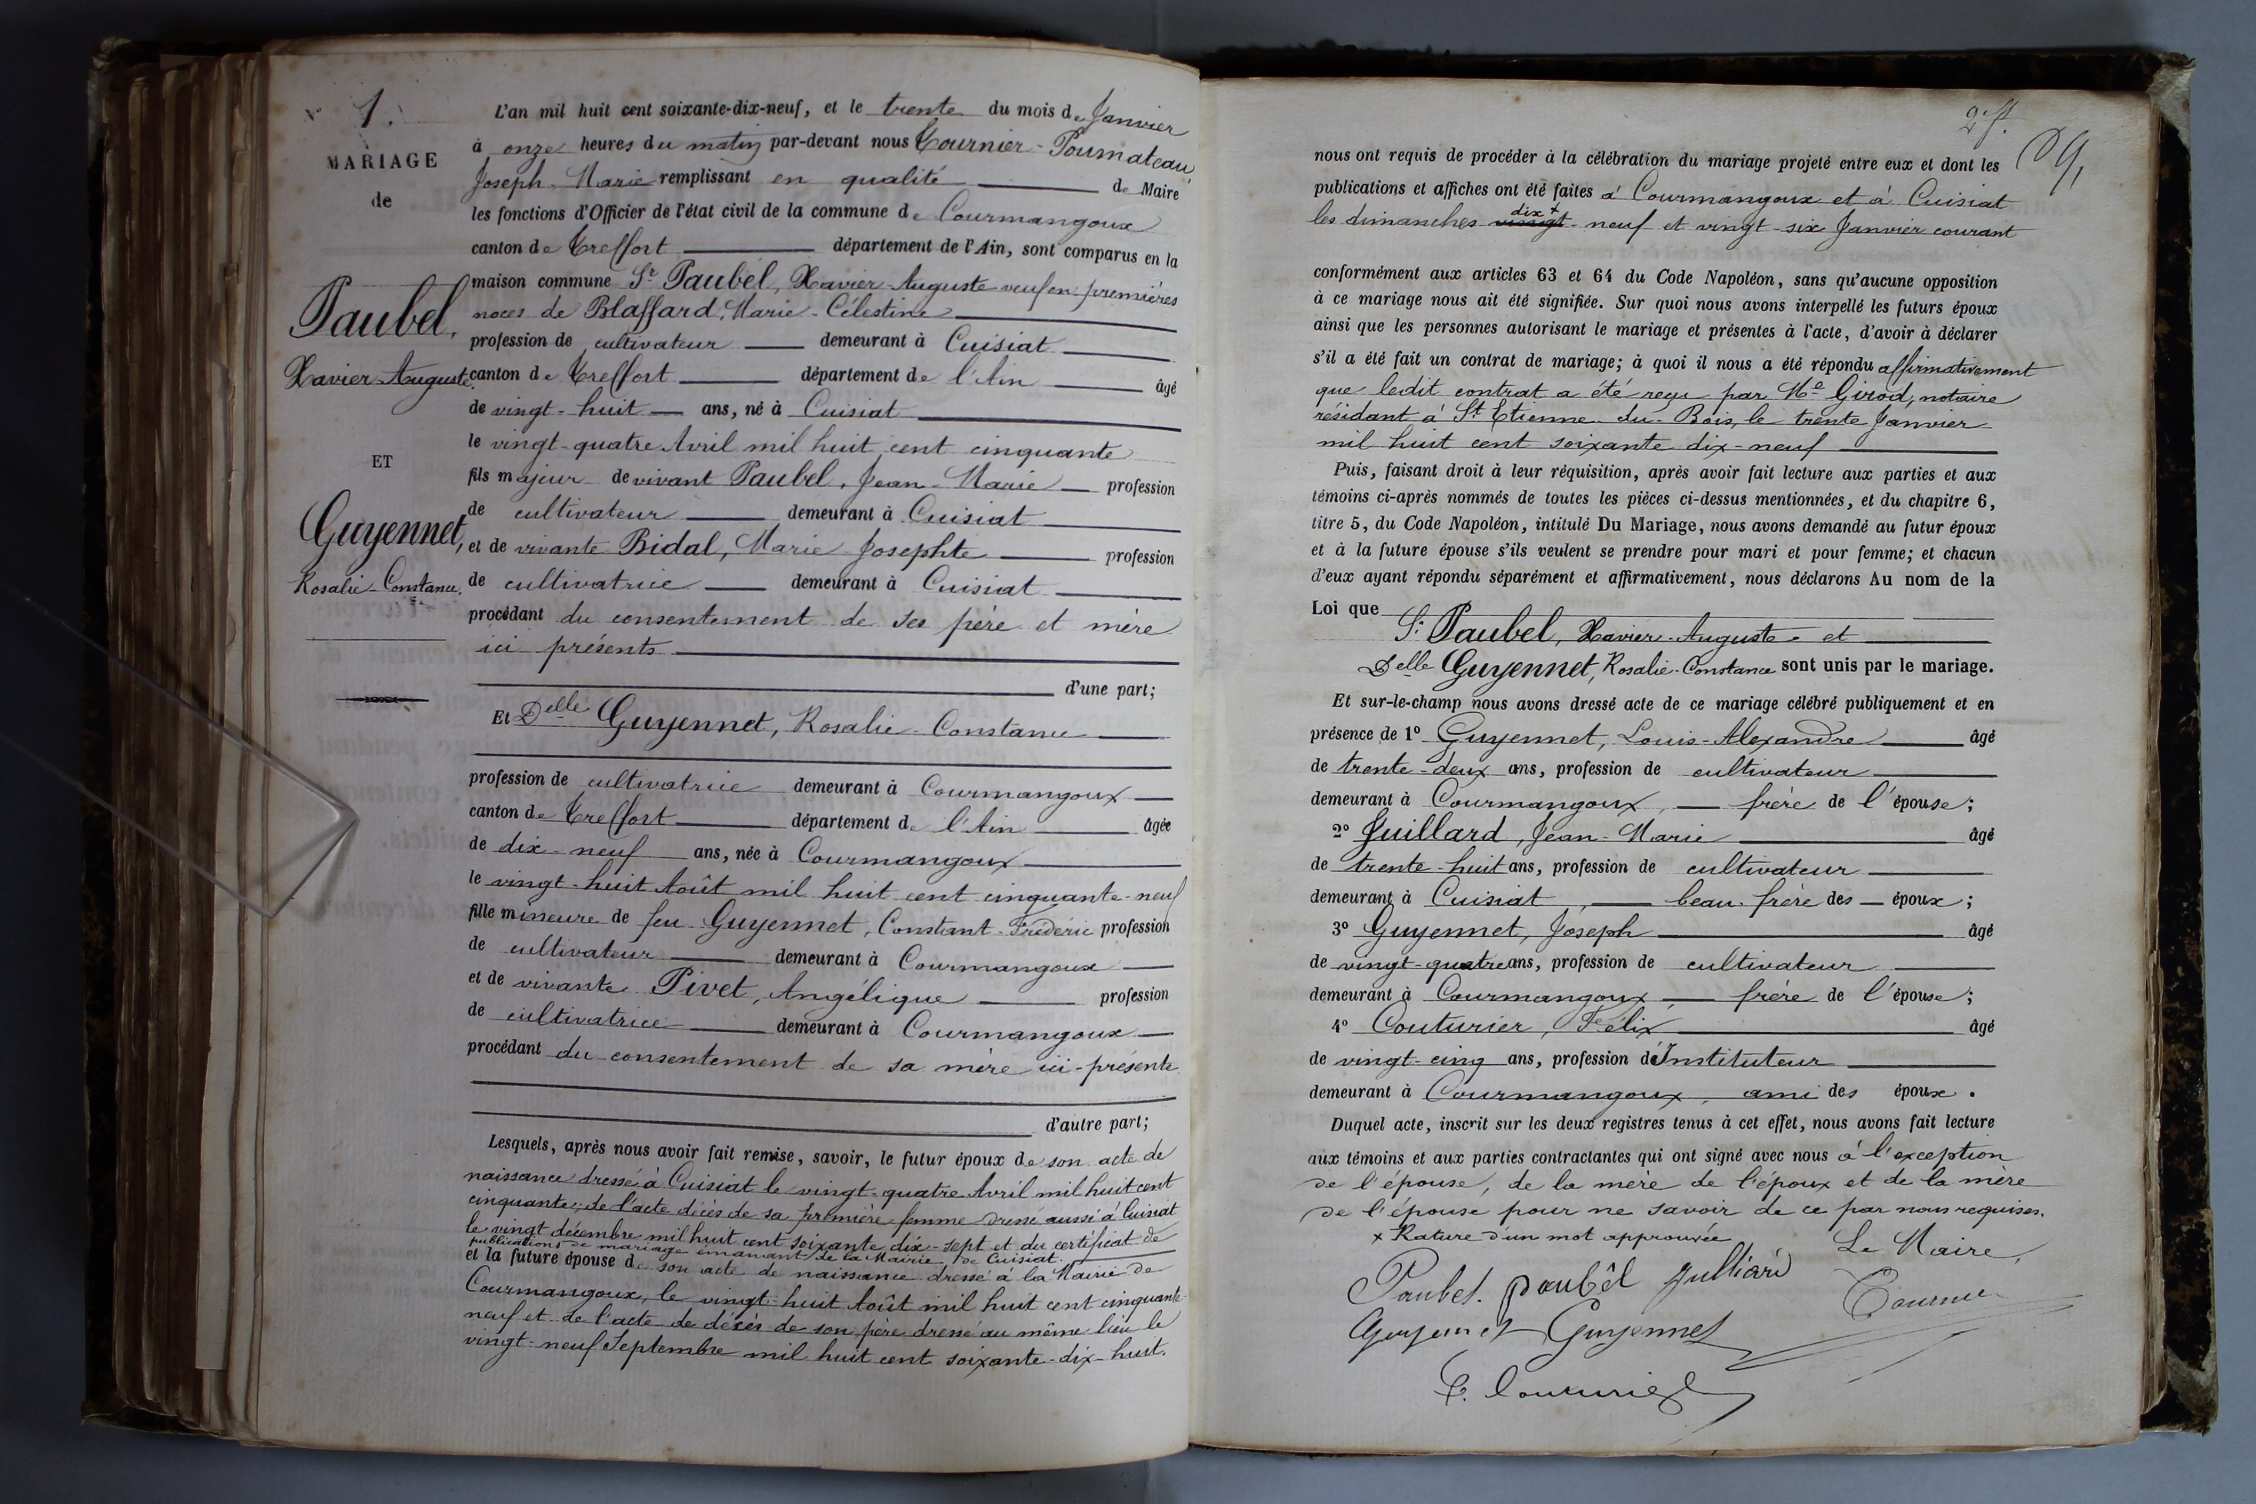 N° 1.
MARIAGE
de
Paubel,
Xavier-Auguste.
ET
Guyennet,
Rosalie-Constance.
L'an mil huit cent soixante-dix-neuf, et le trente du mois de Janvier
à onze heures du matin par-devant nous Tournier-Poumateau,
Joseph-Marie remplissant en qualité de Maire
les fonctions d'Officier de l'état civil de la commune de Courmangoux
canton de Treffort département de l'Ain, sont comparus en la
maison commune Sr. Paubel, Xavier-Auguste veuf en premières
noces de Blaffard, Marie-Célestine
profession de cultivateur demeurant à Cuisiat
canton de Treffort département de l'Ain âgé
de vingt-huit ans, né à Cuisiat
le vingt-quatre Avril mil huit cent cinquante
fils majeur de vivant Paubel, Jean-Marie profession
de cultivateur demeurant à Cuisiat
et de vivante Bidal, Marie Josephte profession
de cultivatrice demeurant à Cuisiat
procédant du consentement de ses père et mère
ici présents
d'une part;
Et Delle Guyennet, Rosalie-Constance
profession de cultivatrice demeurant à Courmangoux
canton de Treffort département de l'Ain âgée
de dix-neuf ans, née à Courmangoux
le vingt-huit Août mil huit cent cinquante-neuf
fille mineure de feu Guyennet, Constant-Frédéric profession
de cultivateur demeurant à Courmangoux
et de vivante Pivet, Angélique profession
de cultivatrice demeurant à Courmangoux
procédant du consentement de sa mère ici-présente
d'autre part;
Lesquels, après nous avoir fait remise, savoir, le futur époux de son acte de
naissance dressé à Cuisiat le vingt-quatre Avril mil huit cent
cinquante; de l'acte décès de sa première femme dressé aussi à Cuisiat
le vingt décembre mil huit cent soixante dix-sept et du certificat de
publications de mariage émanant de la Mairie de Cuisiat.
et la future épouse de son acte de naissance dressé à la Mairie de
Courmangoux, le vingt-huit Août mil huit cent cinquante
neuf et de l'acte de décès de son père dressé au même lieu le
vingt-neuf Septembre mil huit cent soixante-dix-huit.
2 f.
nous ont requis de procéder à la célébration du mariage projeté entre eux et dont les
publications et affiches ont été faites à Courmangoux et à Cuisiat
dix +
les dimanches vingt-neuf et vingt-six Janvier courant
conformément aux articles 63 et 64 du Code Napoléon, sans qu'aucune opposition
à ce mariage nous ait été signifiée. Sur quoi nous avons interpellé les futurs époux
ainsi que les personnes autorisant le mariage et présentes à l'acte, d'avoir à déclarer
s'il a été fait un contrat de mariage; à quoi il nous a été répondu affirmativement
que ledit contrat a été reçu par Me Girod, notaire
résidant à St Etienne-du-Bois, le trente Janvier
mil huit cent soixante dix-neuf
Puis, faisant droit à leur réquisition, après avoir fait lecture aux parties et aux
témoins ci-après nommés de toutes les pièces ci-dessus mentionnées, et du chapitre 6,
titre 5, du Code Napoléon, intitulé Du Mariage, nous avons demandé au futur époux
et à la future épouse s'ils veulent se prendre pour mari et pour femme; et chacun
d'eux ayant répondu séparément et affirmativement, nous déclarons Au nom de la
Loi que
Sr. Paubel, Xavier-Auguste et
Delle Guyennet, Rosalie-Constance sont unis par le mariage.
Et sur-le-champ nous avons dressé acte de ce mariage célébré publiquement et en
présence de 1° Guyennet, Louis-Alexandre âgé
de trente-deux ans, profession de cultivateur
demeurant à Courmangoux, frère de l'épouse;
2° Juillard, Jean-Marie âgé
de trente-huit ans, profession de cultivateur
demeurant à Cuisiat, beau-frère des époux;
3° Guyennet, Joseph âgé
de vingt-quatre ans, profession de cultivateur
demeurant à Courmangoux, frère de l'épouse;
4° Couturier, Félix âgé
de vingt-cinq ans, profession d'Instituteur
demeurant à Courmangoux, ami des époux.
Duquel acte, inscrit sur les deux registres tenus à cet effet, nous avons fait lecture
aux témoins et aux parties contractantes qui ont signé avec nous à l'exception
de l'épouse, de la mère de l'époux et de la mère
de l'épouse pour ne savoir de ce par nous requises.
+ Rature d'un mot approuvée
Le Maire,
Paubel. paubêl Julliard
Tournier
Guyennet Guyennet
F. Couturier